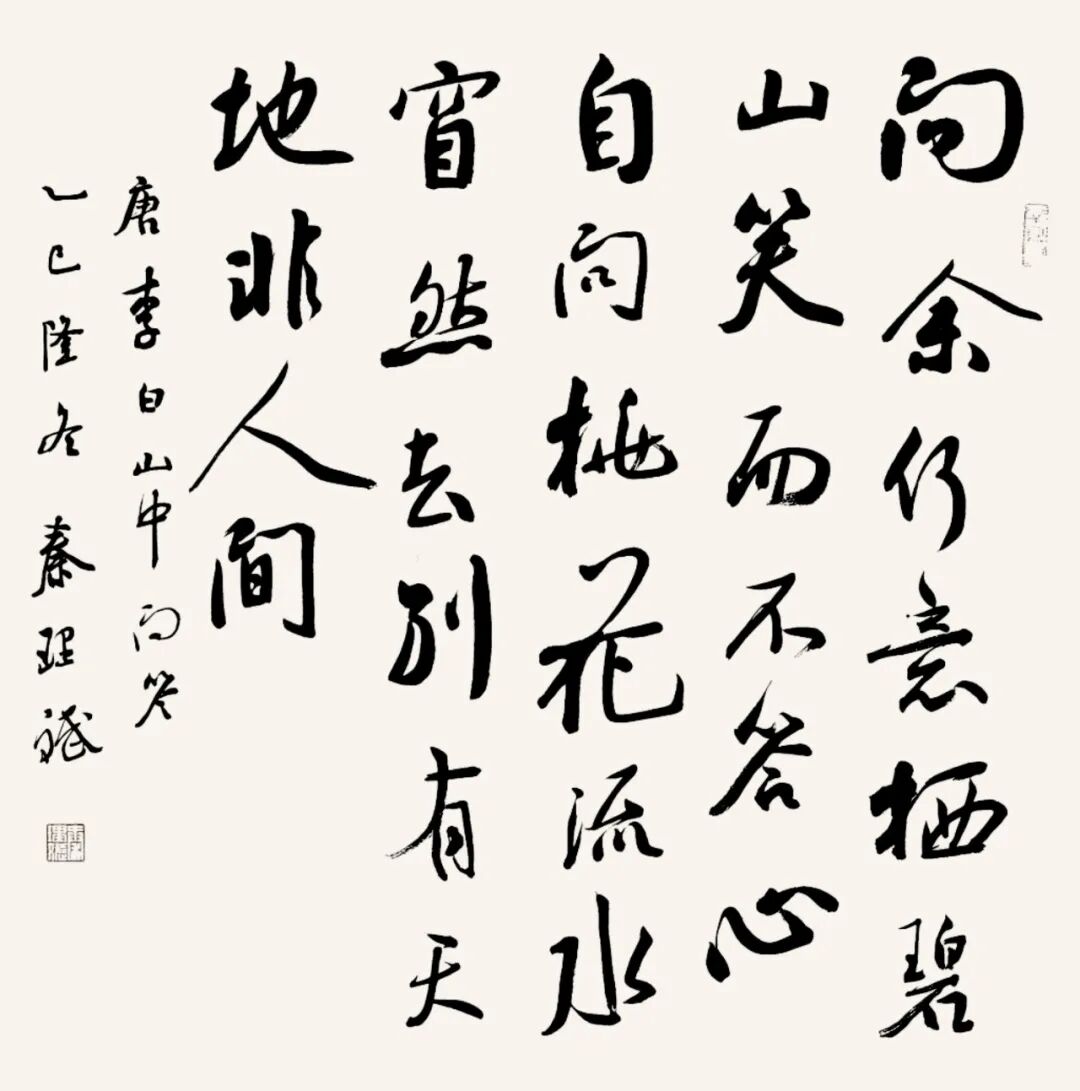 问余何意栖碧
山笑而不答心
自问桃花流水
窅然去别有天
地非人间
唐李白山中问答
乙巳隆冬 秦理